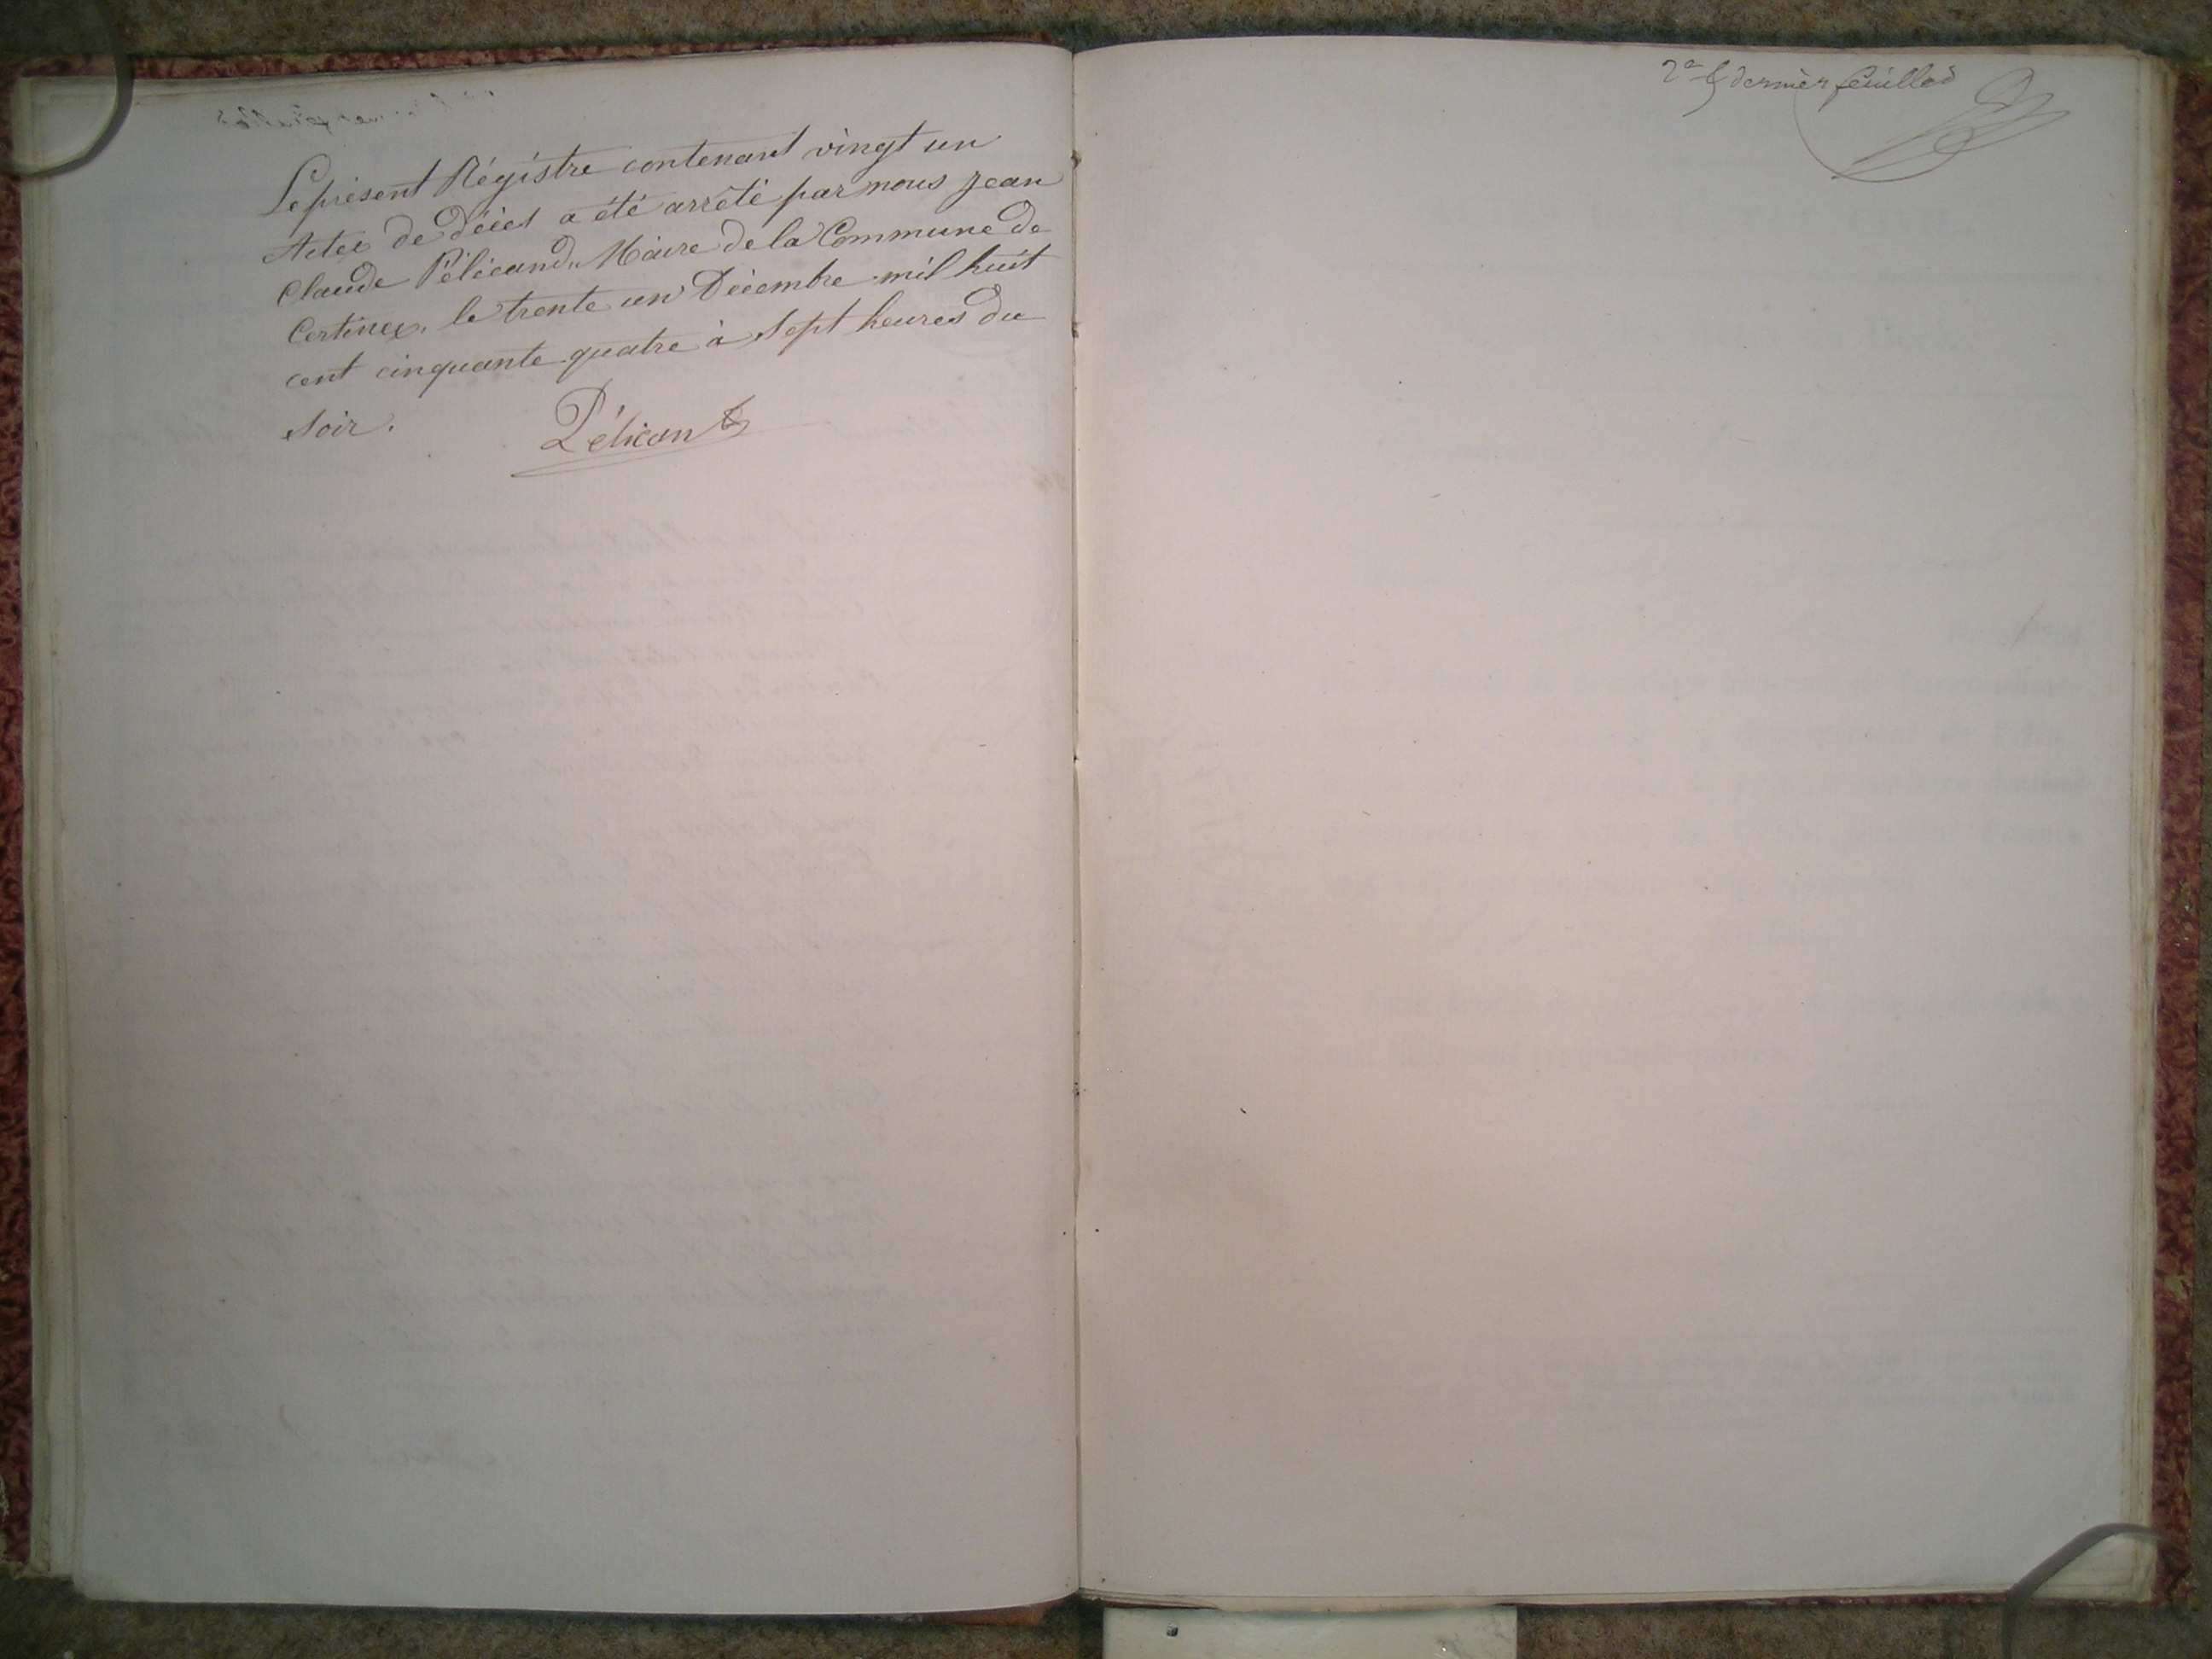 Le présent Régistre contenant vingt un
Actes de Décès a été arrêté par nous Jean
Claude Pélicand, Maire de la Commune de
Certines, le trente un Décembre mil huit
cent cinquante quatre à sept heures du
soir.
Pélicand
2e & dernier feuillet